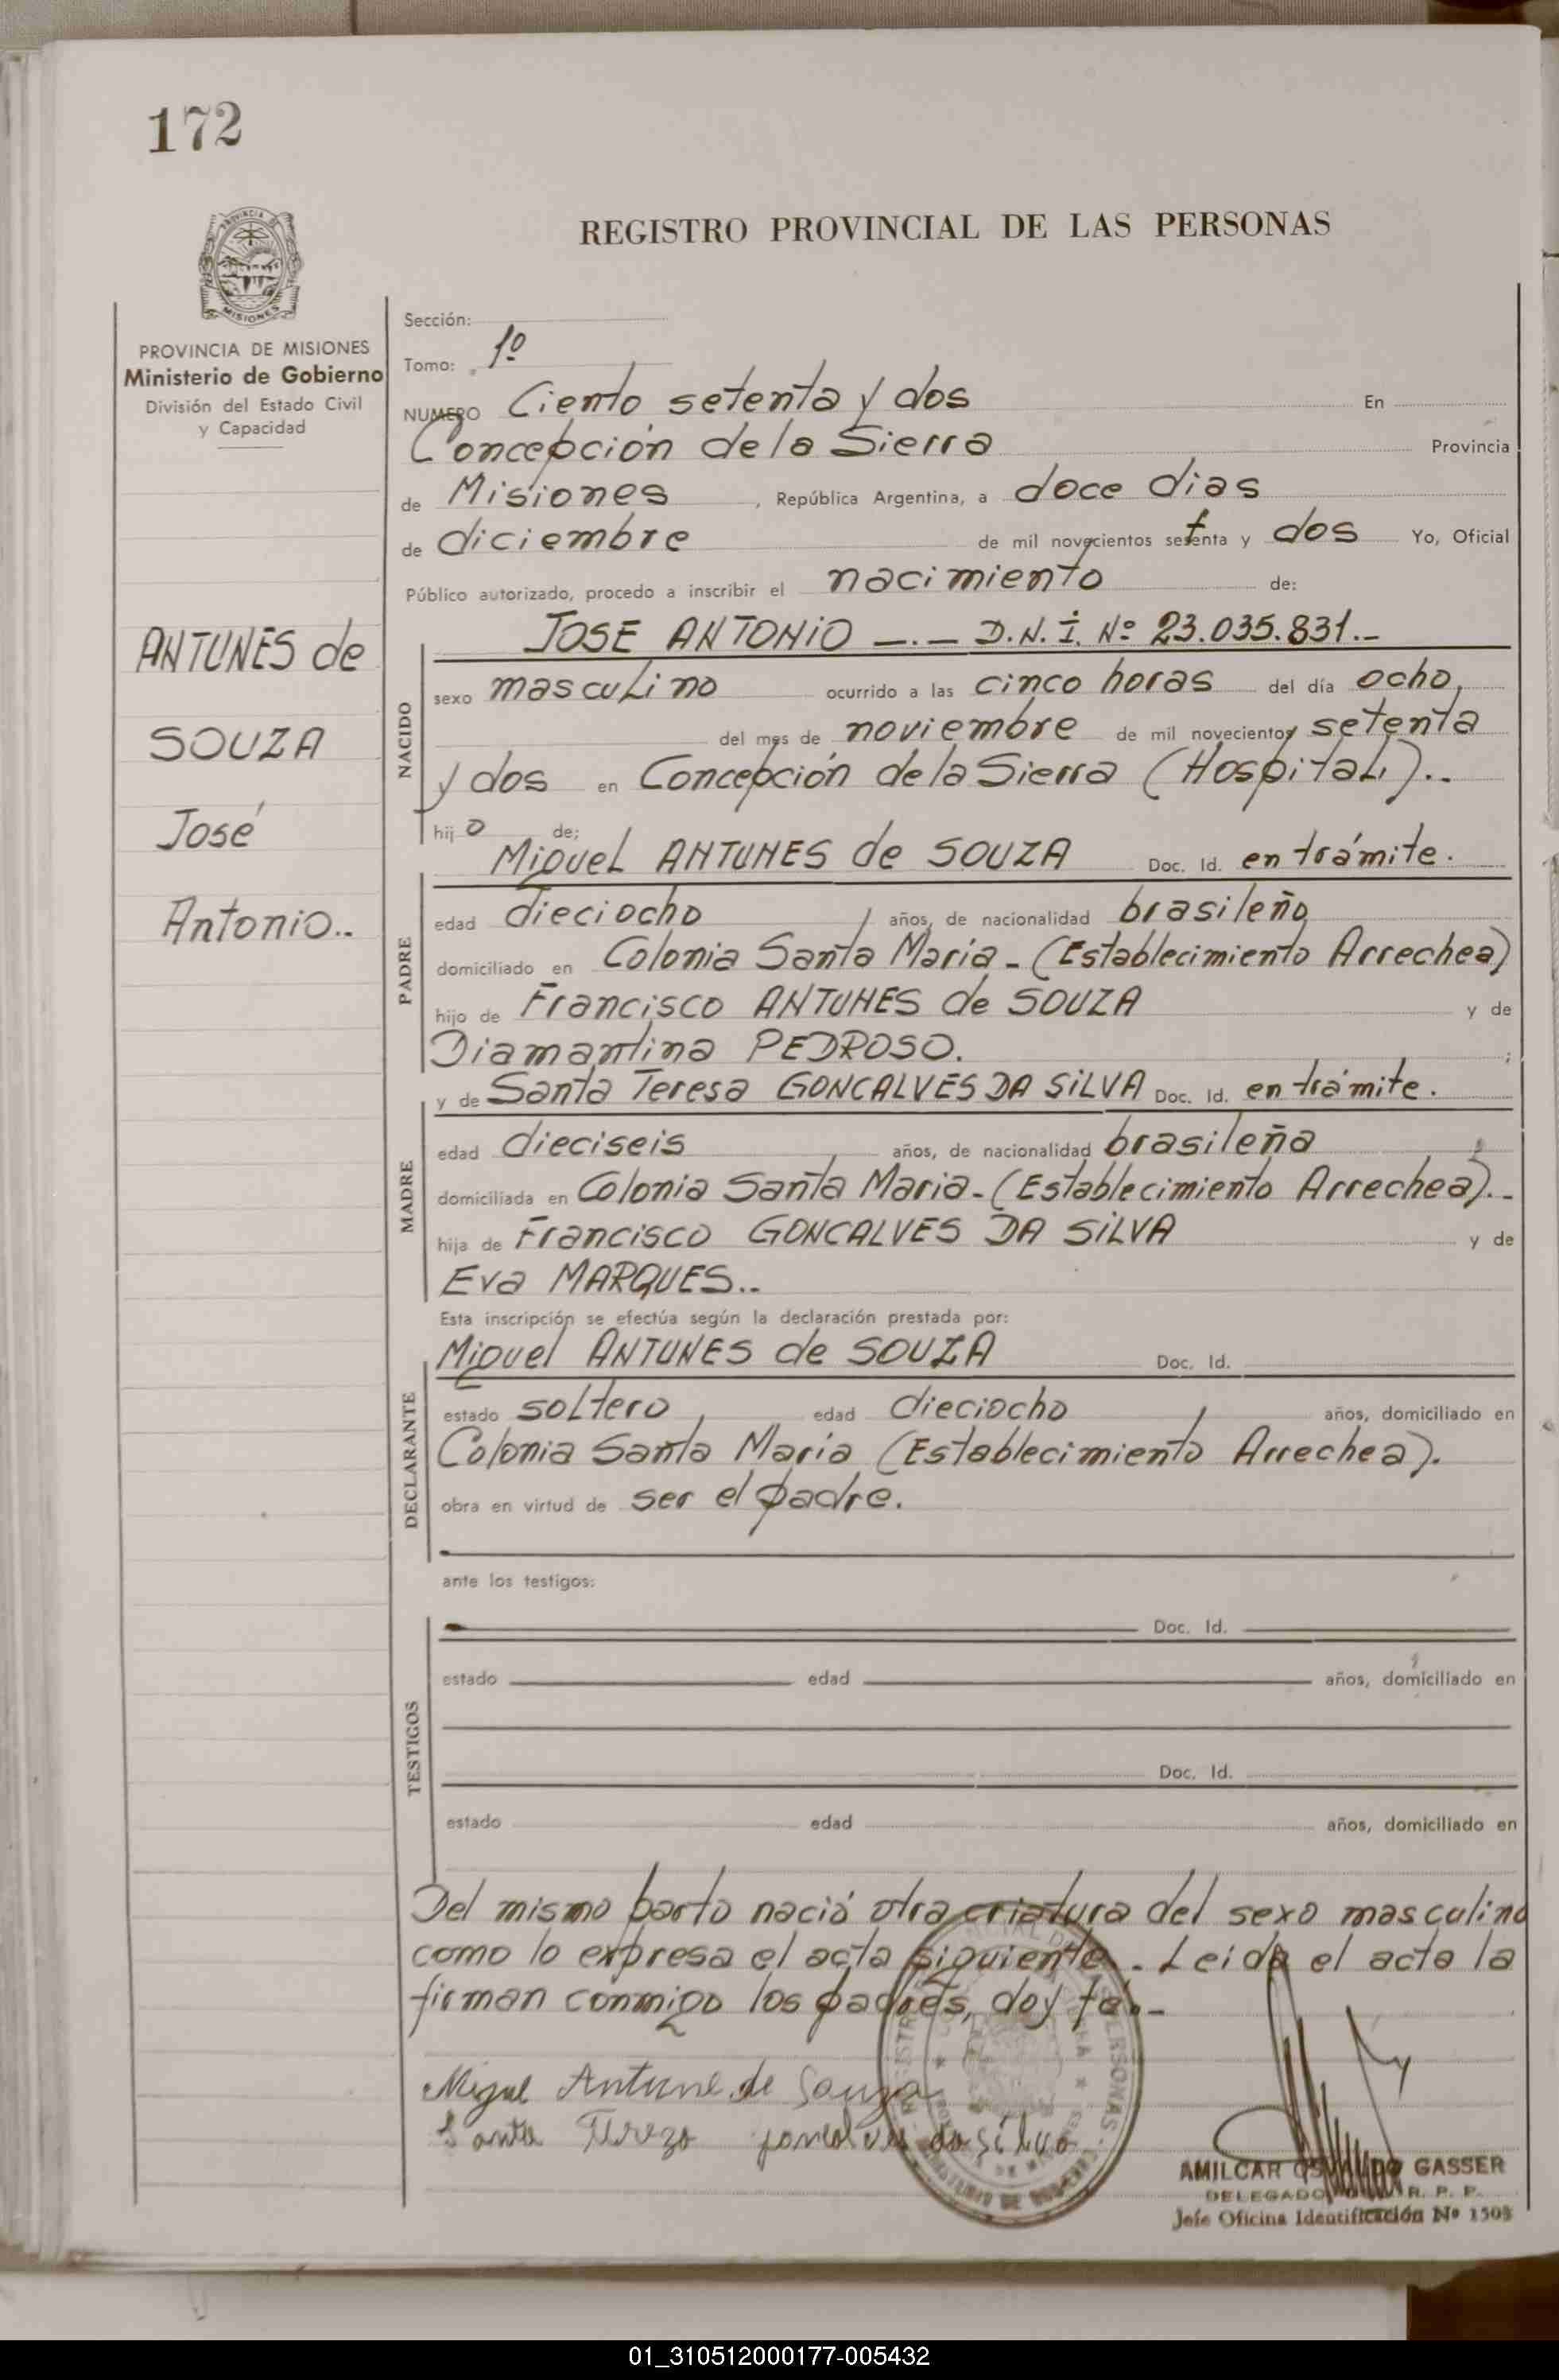 172
REGISTRO PROVINCIAL DE LAS PERSONAS
PROVINCIA DE MISIONES
Ministerio de Gobierno
División del Estado Civil
y Capacidad
ANTUNES de
SOUZA
José
Antonio..
Sección:
Tomo: 1º
NUMERO Ciento setenta y dos En
Concepción de la Sierra Provincia
de Misiones, República Argentina, a doce dias
de diciembre de mil novecientos setenta y dos Yo, Oficial
Público autorizado, procedo a inscribir el nacimiento de:
JOSE ANTONIO —.— D.N.I. Nº 23.035.831.-
NACIDO
sexo masculino ocurrido a las cinco horas del día ocho,
del mes de noviembre de mil novecientos setenta
y dos en Concepción de la Sierra (Hospital)..
hijo de:
Miguel ANTUNES de SOUZA Doc. Id. en trámite.
PADRE
edad dieciocho años, de nacionalidad brasileño
domiciliado en Colonia Santa María - (Establecimiento Arrechea)
hijo de Francisco ANTUNES de SOUZA y de
Diamantina PEDROSO. ;
y de Santa Teresa GONCALVES DA SILVA Doc. Id. en trámite.
MADRE
edad dieciseis años, de nacionalidad brasileña
domiciliada en Colonia Santa Maria - (Establecimiento Arrechea).-
hija de Francisco GONCALVES DA SILVA y de
Eva MARQUES..
Esta inscripción se efectúa según la declaración prestada por:
Miguel ANTUNES de SOUZA Doc. Id.
DECLARANTE
estado soltero, edad dieciocho años, domiciliado en
Colonia Santa María (Establecimiento Arrechea).
obra en virtud de ser el padre.
ante los testigos:
Doc. Id.
TESTIGOS
estado edad años, domiciliado en
Doc. Id.
estado edad años, domiciliado en
Del mismo parto nació otra criatura del sexo masculino
como lo expresa el acta siguiente. - Leida el acta la
firman conmigo los padres, doy fé.-
Miguel Antune de Souza
Santa Tereza goncalves da Silva
AMILCAR OSVALDO GASSER
DELEGADO R. P. P.
Jefe Oficina Identificación Nº 1503
01_310512000177-005432